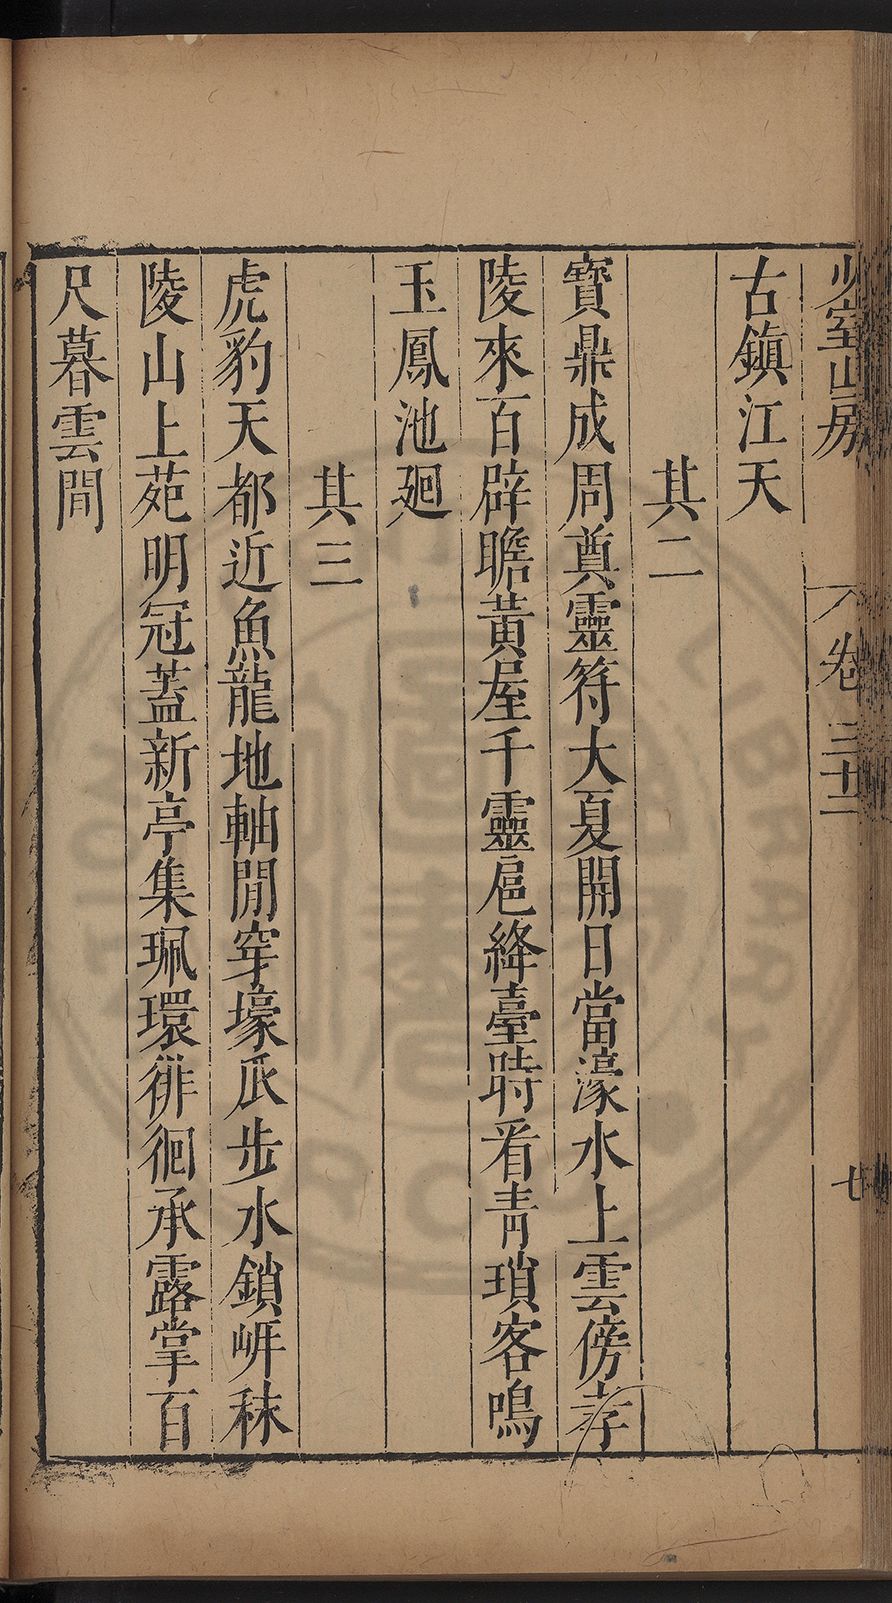 少室山房
卷三十二
七
古鎮江天
其二
寳鼎成周奠靈符大夏開日當濠水上雲傍孝
陵來百辟瞻黃屋千靈扈絳臺時看青瑣客鳴
玉鳳池廻
其三
虎豹天都近魚龍地軸閒穿壕瓜步水鎖㟁秣
陵山上苑明冠蓋新亭集珮環徘徊承露掌百
尺暮雲間